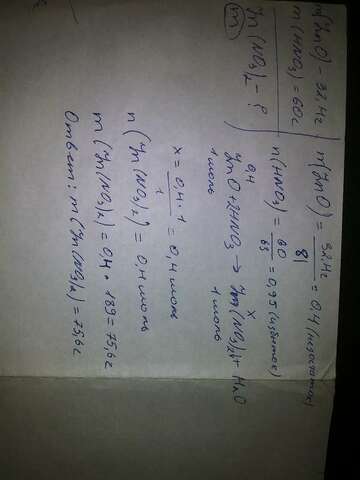 m(ZnO) - 32,4г
m(HNO₃) = 60г
m Zn(NO₃)₂ - ?
n(ZnO) = 32,4г / 81 = 0,4 (недостаток)
n(HNO₃) = 60 / 63 = 0,95 (избыток)
0,4 x
ZnO + 2HNO₃ → Zn(NO₃)₂ + H₂O
1 моль 1 моль
x = 0,4 · 1 / 1 = 0,4 моль
n (Zn(NO₃)₂) = 0,4 моль
m (Zn(NO₃)₂) = 0,4 · 189 = 75,6г
Ответ: m (Zn(NO₃)₂) = 75,6г